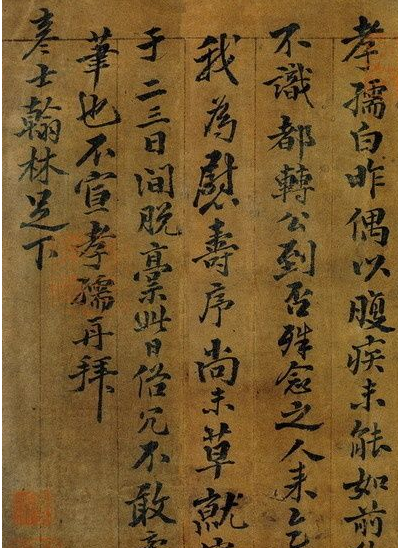 孝孺白昨偶以腹疾未能如前
不識都轉公到否殊念之人来乞
我為慰壽序尚未草就
于二三日间脱稾此日俗冗不敢
筆也不宣孝孺再拜
彦士翰林足下